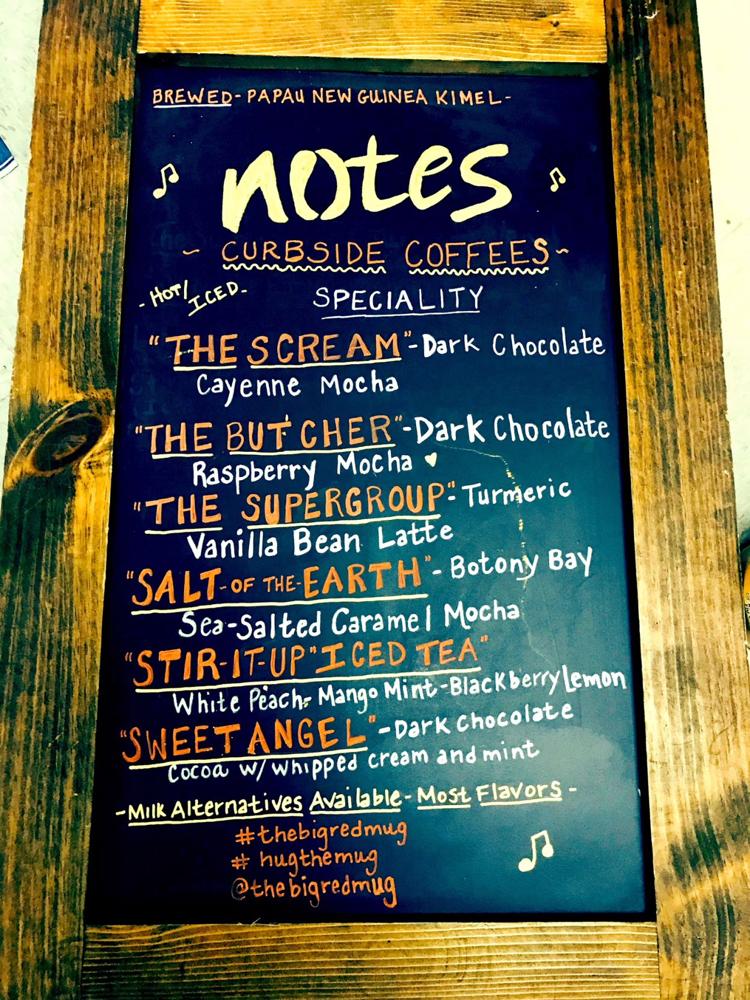 BREWED- PAPAU NEW GUINEA KIMEL-
notes
~ CURBSIDE COFFEES~
-HOT/ICED-
SPECIALITY
"THE SCREAM"-Dark Chocolate
Cayenne Mocha
"THE BUTCHER"-Dark Chocolate
Raspberry Mocha ♥
"THE SUPERGROUP"-Turmeric
Vanilla Bean Latte
"SALT-OF THE-EARTH"- Botony Bay
Sea-Salted Caramel Mocha
"STIR-IT-UP" ICED TEA"
White Peach- Mango Mint-Blackberry Lemon
"SWEET ANGEL"-Dark Chocolate
Cocoa w/ whipped cream and mint
-Milk Alternatives Available- Most Flavors -
#thebigredmug
# hugthemug
@thebigredmug